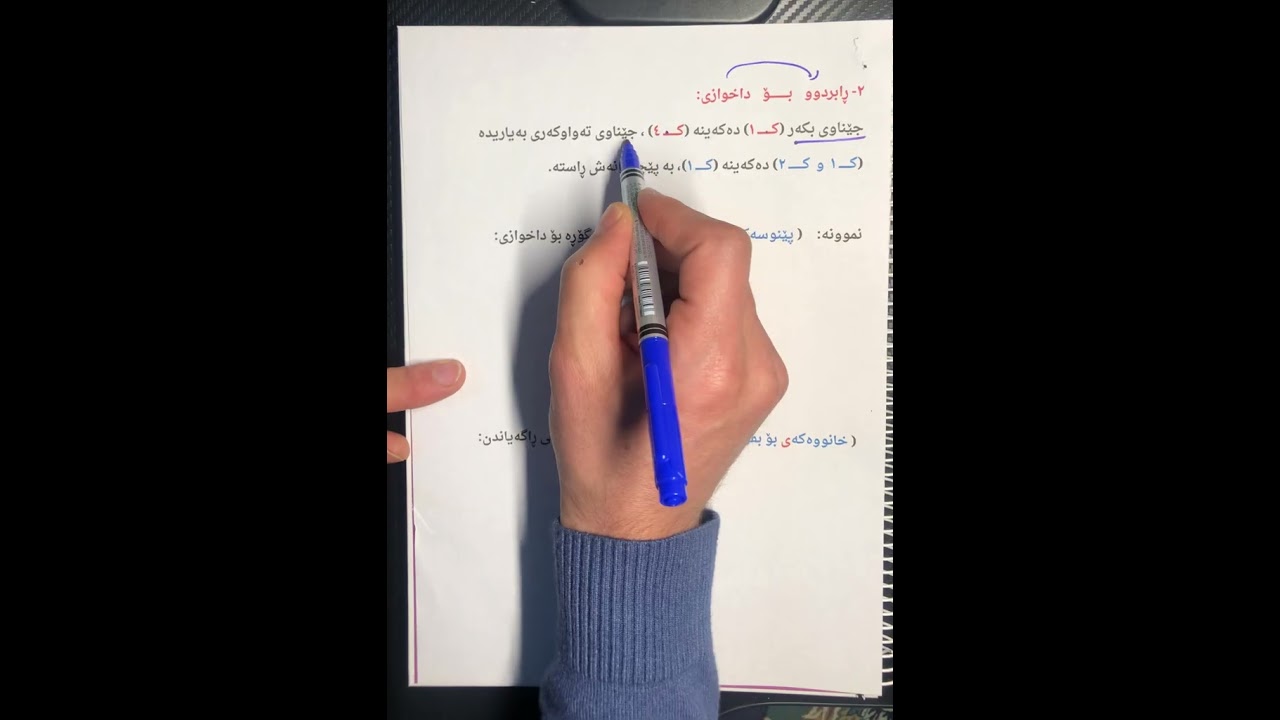 ٢- ڕابردوو بـــۆ داخوازی:
جێناوی بکەر (کــ١) دەکەینە (کــ٤) ، جێناوی تەواوکەری بەیاریدە
(کــ١ و کــ٢) دەکەینە (کــ١)، بە ڕاستە.
نموونە: ( گۆڕە بۆ داخوازی:
( خانووەکەی بۆ ڕاگەیاندن: